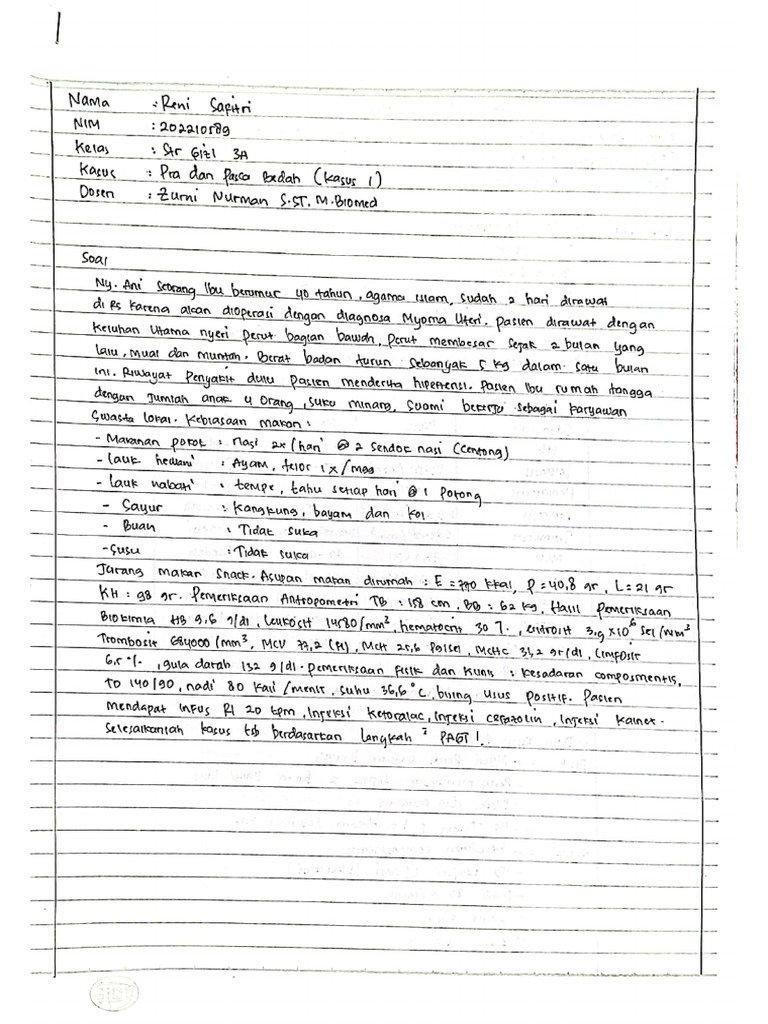 1
Nama : Reni Safitri
NIM : 202210589
Kelas : Str Gizi 3A
Kasus : Pra dan Pasca Bedah (Kasus 1)
Dosen : Zurni Nurman S.ST. M.Biomed
Soal
Ny. Ani seorang Ibu berumur 40 tahun, agama islam, sudah 2 hari dirawat
di RS karena akan dioperasi dengan diagnosa Myoma Uteri. pasien dirawat dengan
keluhan utama nyeri perut bagian bawah, perut membesar sejak 2 bulan yang
lalu, mual dan muntah. Berat badan turun sebanyak 5 kg dalam satu bulan
ini. Riwayat Penyakit dulu pasien menderita hipertensi. Pasien Ibu rumah tangga
dengan Jumlah anak 4 orang, suku minang, Suami bekerja sebagai karyawan
Swasta lokal. Kebiasaan makan :
- Makanan pokok : Nasi 2x/hari @ 2 sendok nasi (centong)
- lauk hewani : Ayam, telor 1x/mgg
- lauk nabati : tempe, tahu setiap hari @ 1 potong
- Sayur : Kangkung, bayam dan kol
- Buah : Tidak suka
- Susu : Tidak suka
Jarang makan snack. Asupan makan dirumah : E = 770 kkal, P = 40,8 gr, L = 21 gr
KH : 98 gr. Pemeriksaan Antropometri TB : 158 cm, BB : 62 kg, Hasil Pemeriksaan
Biokimia HB 9,6 g/dl, Leukosit 14580/mm³, hematocrit 30 %, eritrosit 3,9 x10⁶ sel/mm³
Trombosit 684000/mm³, MCV 77,2 (fl), MCH 25,6 pg/sel, MCHC 31,2 gr/dl, Limfosit
6,5 %, gula darah 132 g/dl. pemeriksaan fisik dan klinis : kesadaran composmentis,
TD 140/90, nadi 80 kali/menit, suhu 36,6 °C, bising usus positif. Pasien
mendapat infus Rl 20 tpm, Injeksi ketoralac, injeksi cefazolin, injeksi kalnex.
Selesaikanlah kasus tsb berdasarkan langkah² PAGT!